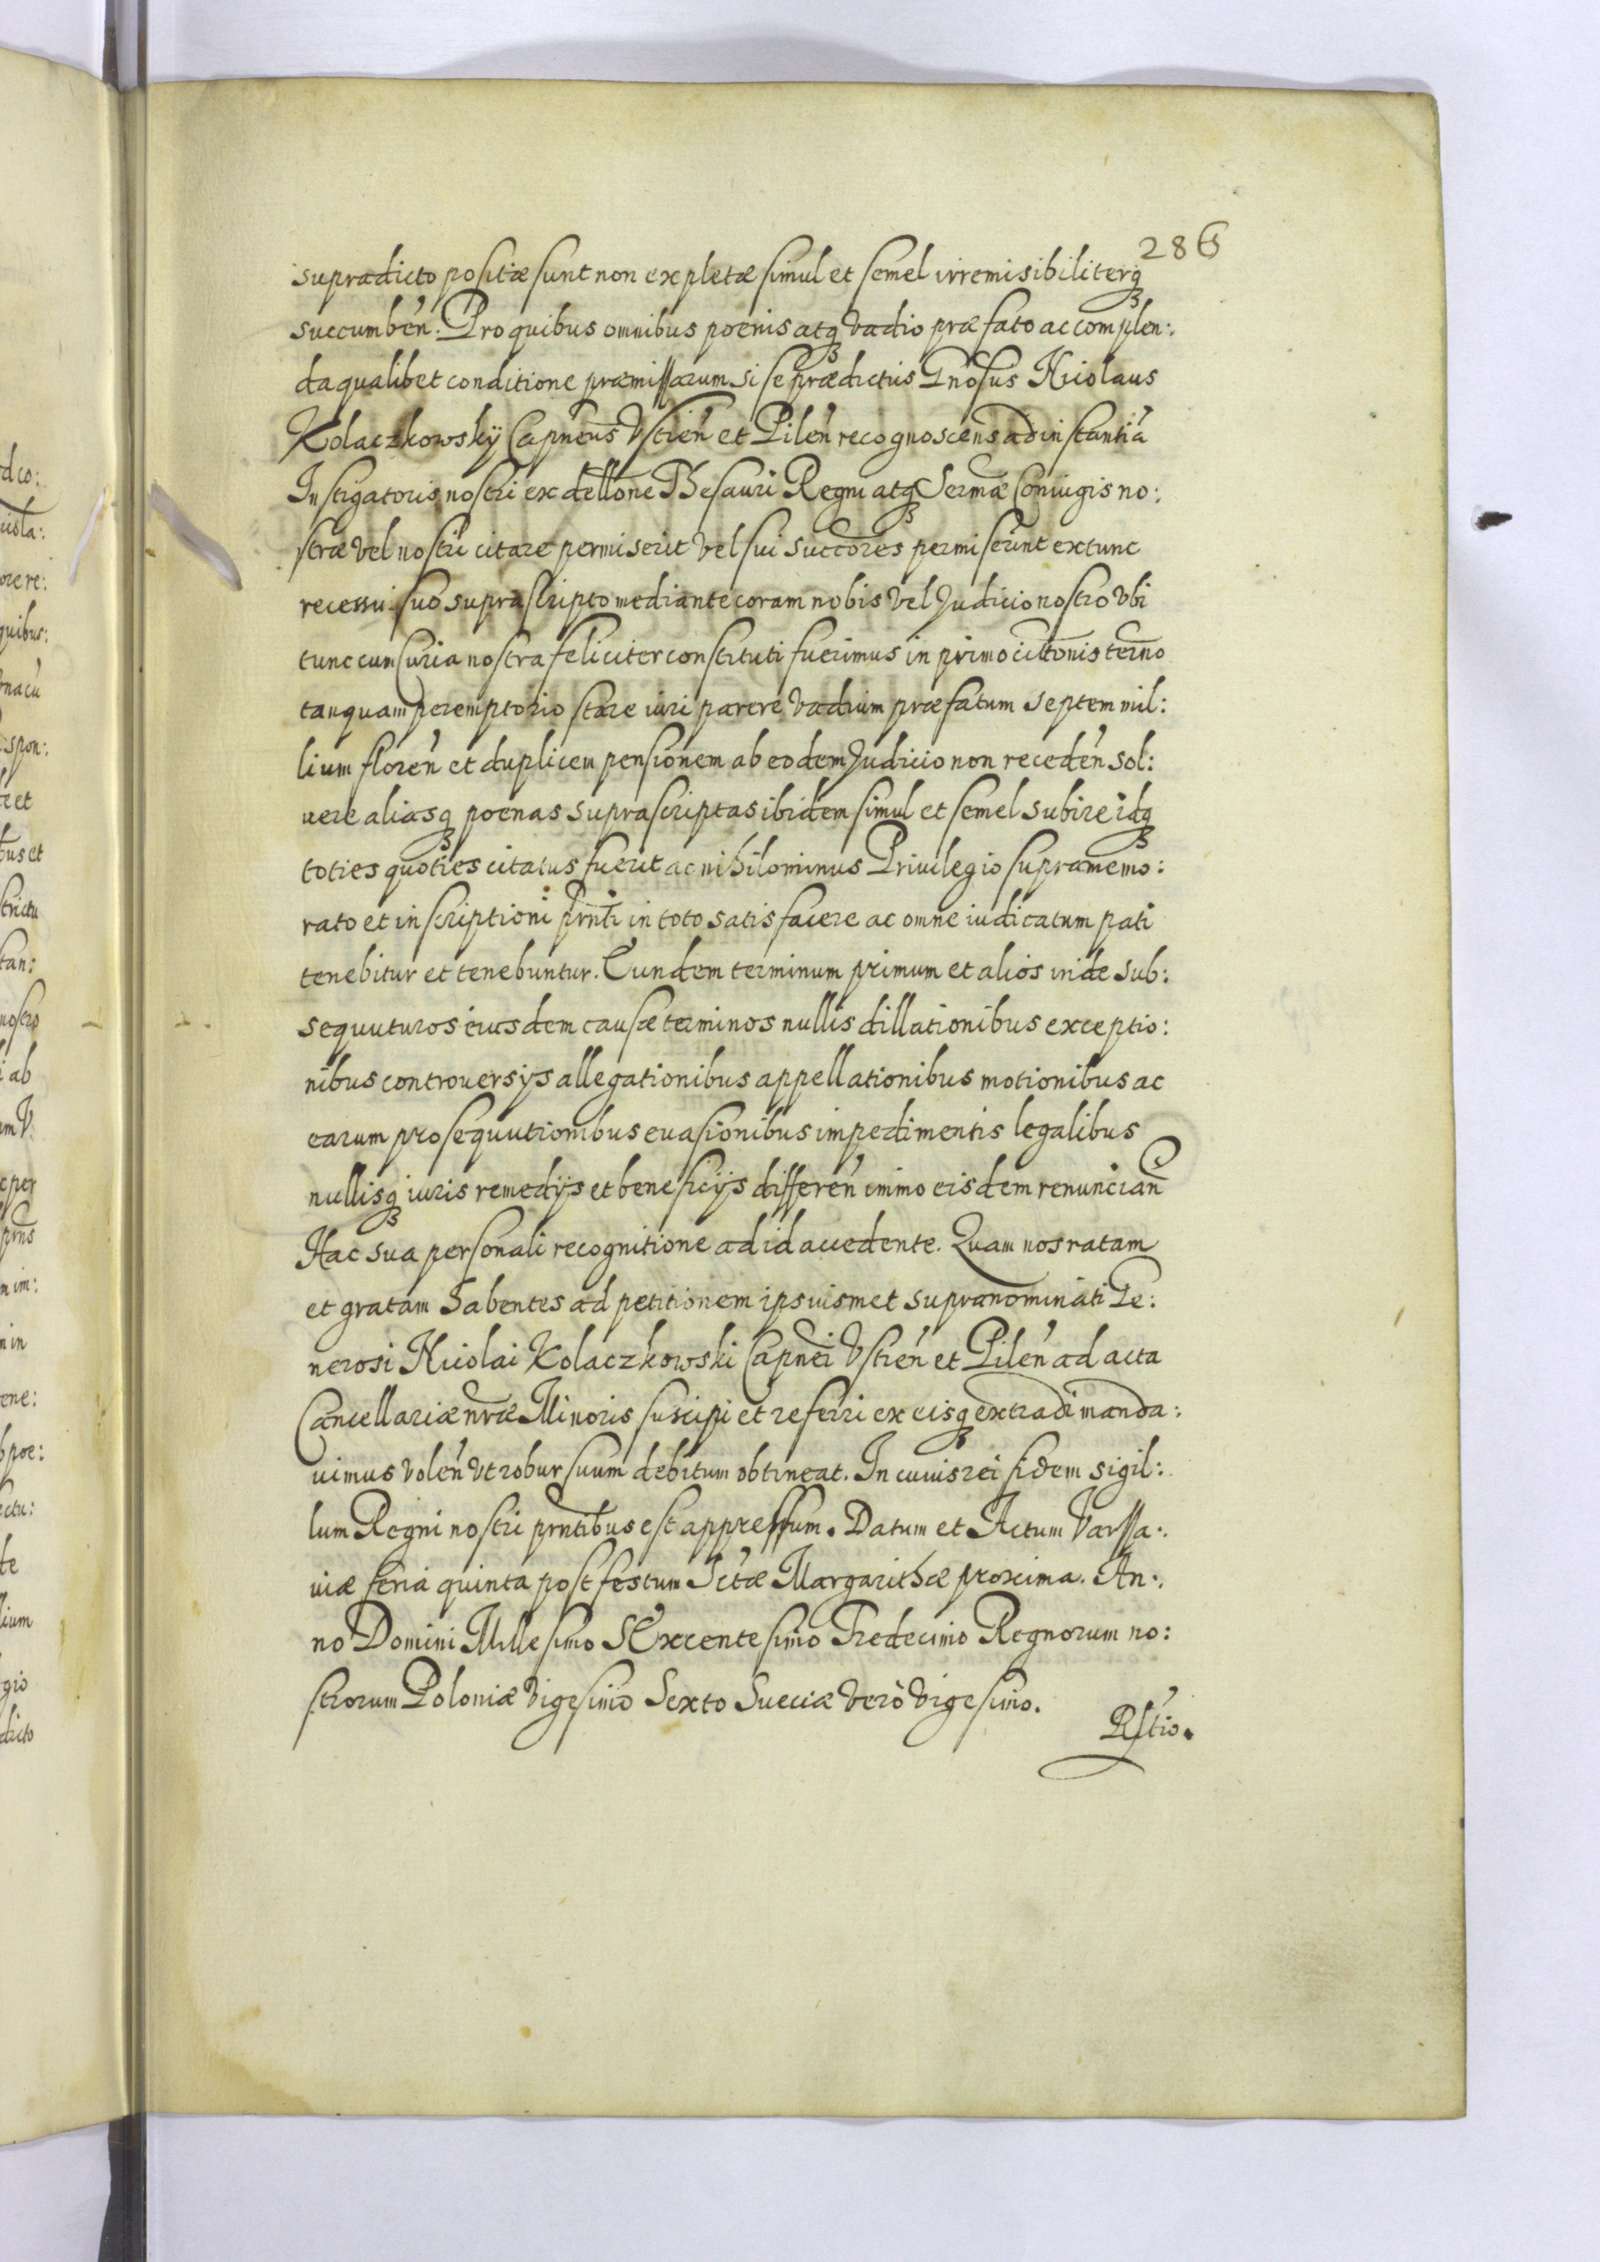 286
supradicto positæ sunt non expletæ simul et semel irremisibiliterq3
succumben̄. Pro quibus omnibus poenis atq3 vadio præfato ac complen:
da qualibet conditione præmissarum si se prædictus Gnosus Nicolaus
Kolaczkowskÿ Capneus Vstien̄ et Pilen̄ recognoscens ad instantiā
Instigatoris nostri ex dellone Thesauri Regni atq3 Sermæ Coniugis no:
stræ vel nostri citare permiserit vel sui succores permiserint extunc
recessu suo suprascripto mediante coram nobis vel Judicio nostro vbi
tunc cum Curia nostra feliciter constituti fuerimus in primo cittonis termo
tanquam peremptorio stare iuri parere vadium præfatum septem mil:
lium floren̄ et duplicem pensionem ab eodem Judicio non receden̄ sol:
uere aliasq3 poenas suprascriptas ibidem simul et semel subire idq3
toties quoties citatus fuerit ac nihilominus Priuilegio supramemo:
rato et inscriptioni prnti in toto satisfacere ac omne iudicatum pati
tenebitur et tenebuntur. Eundem terminum primum et alios inde sub:
sequuturos eiusdem causæ terminos nullis dillationibus exceptio:
nibus controuersys allegationibus appellationibus motionibus ac
earum prosequutionibus euasionibus impedimentis legalibus
nullisq3 iuris remedÿs et beneficÿs differen̄ immo eisdem renuncian̄
Hac sua personali recognitione ad id accedente. Quam nos ratam
et gratam habentes ad petitionem ipsiusmet supranominati Ge:
nerosi Nicolai Kolaczkowski Capnei Vstien̄ et Pilen̄ ad acta
Cancellariæ nræ Minoris suscipi et referri ex eisq3 extradi manda:
uimus volen̄ vt robur suum debitum obtineat. In cuius rei fidem sigil:
lum Regni nostri prntibus est appressum. Datum et Actum Varssa:
uiæ feria quinta post festum Sctæ Margarithæ proxima. An:
no Domini Millesimo SExcentesimo Tredecimo Regnorum no:
strorum Poloniæ Vigesimo Sexto Sueciæ verò Vigesimo.
Rstio.